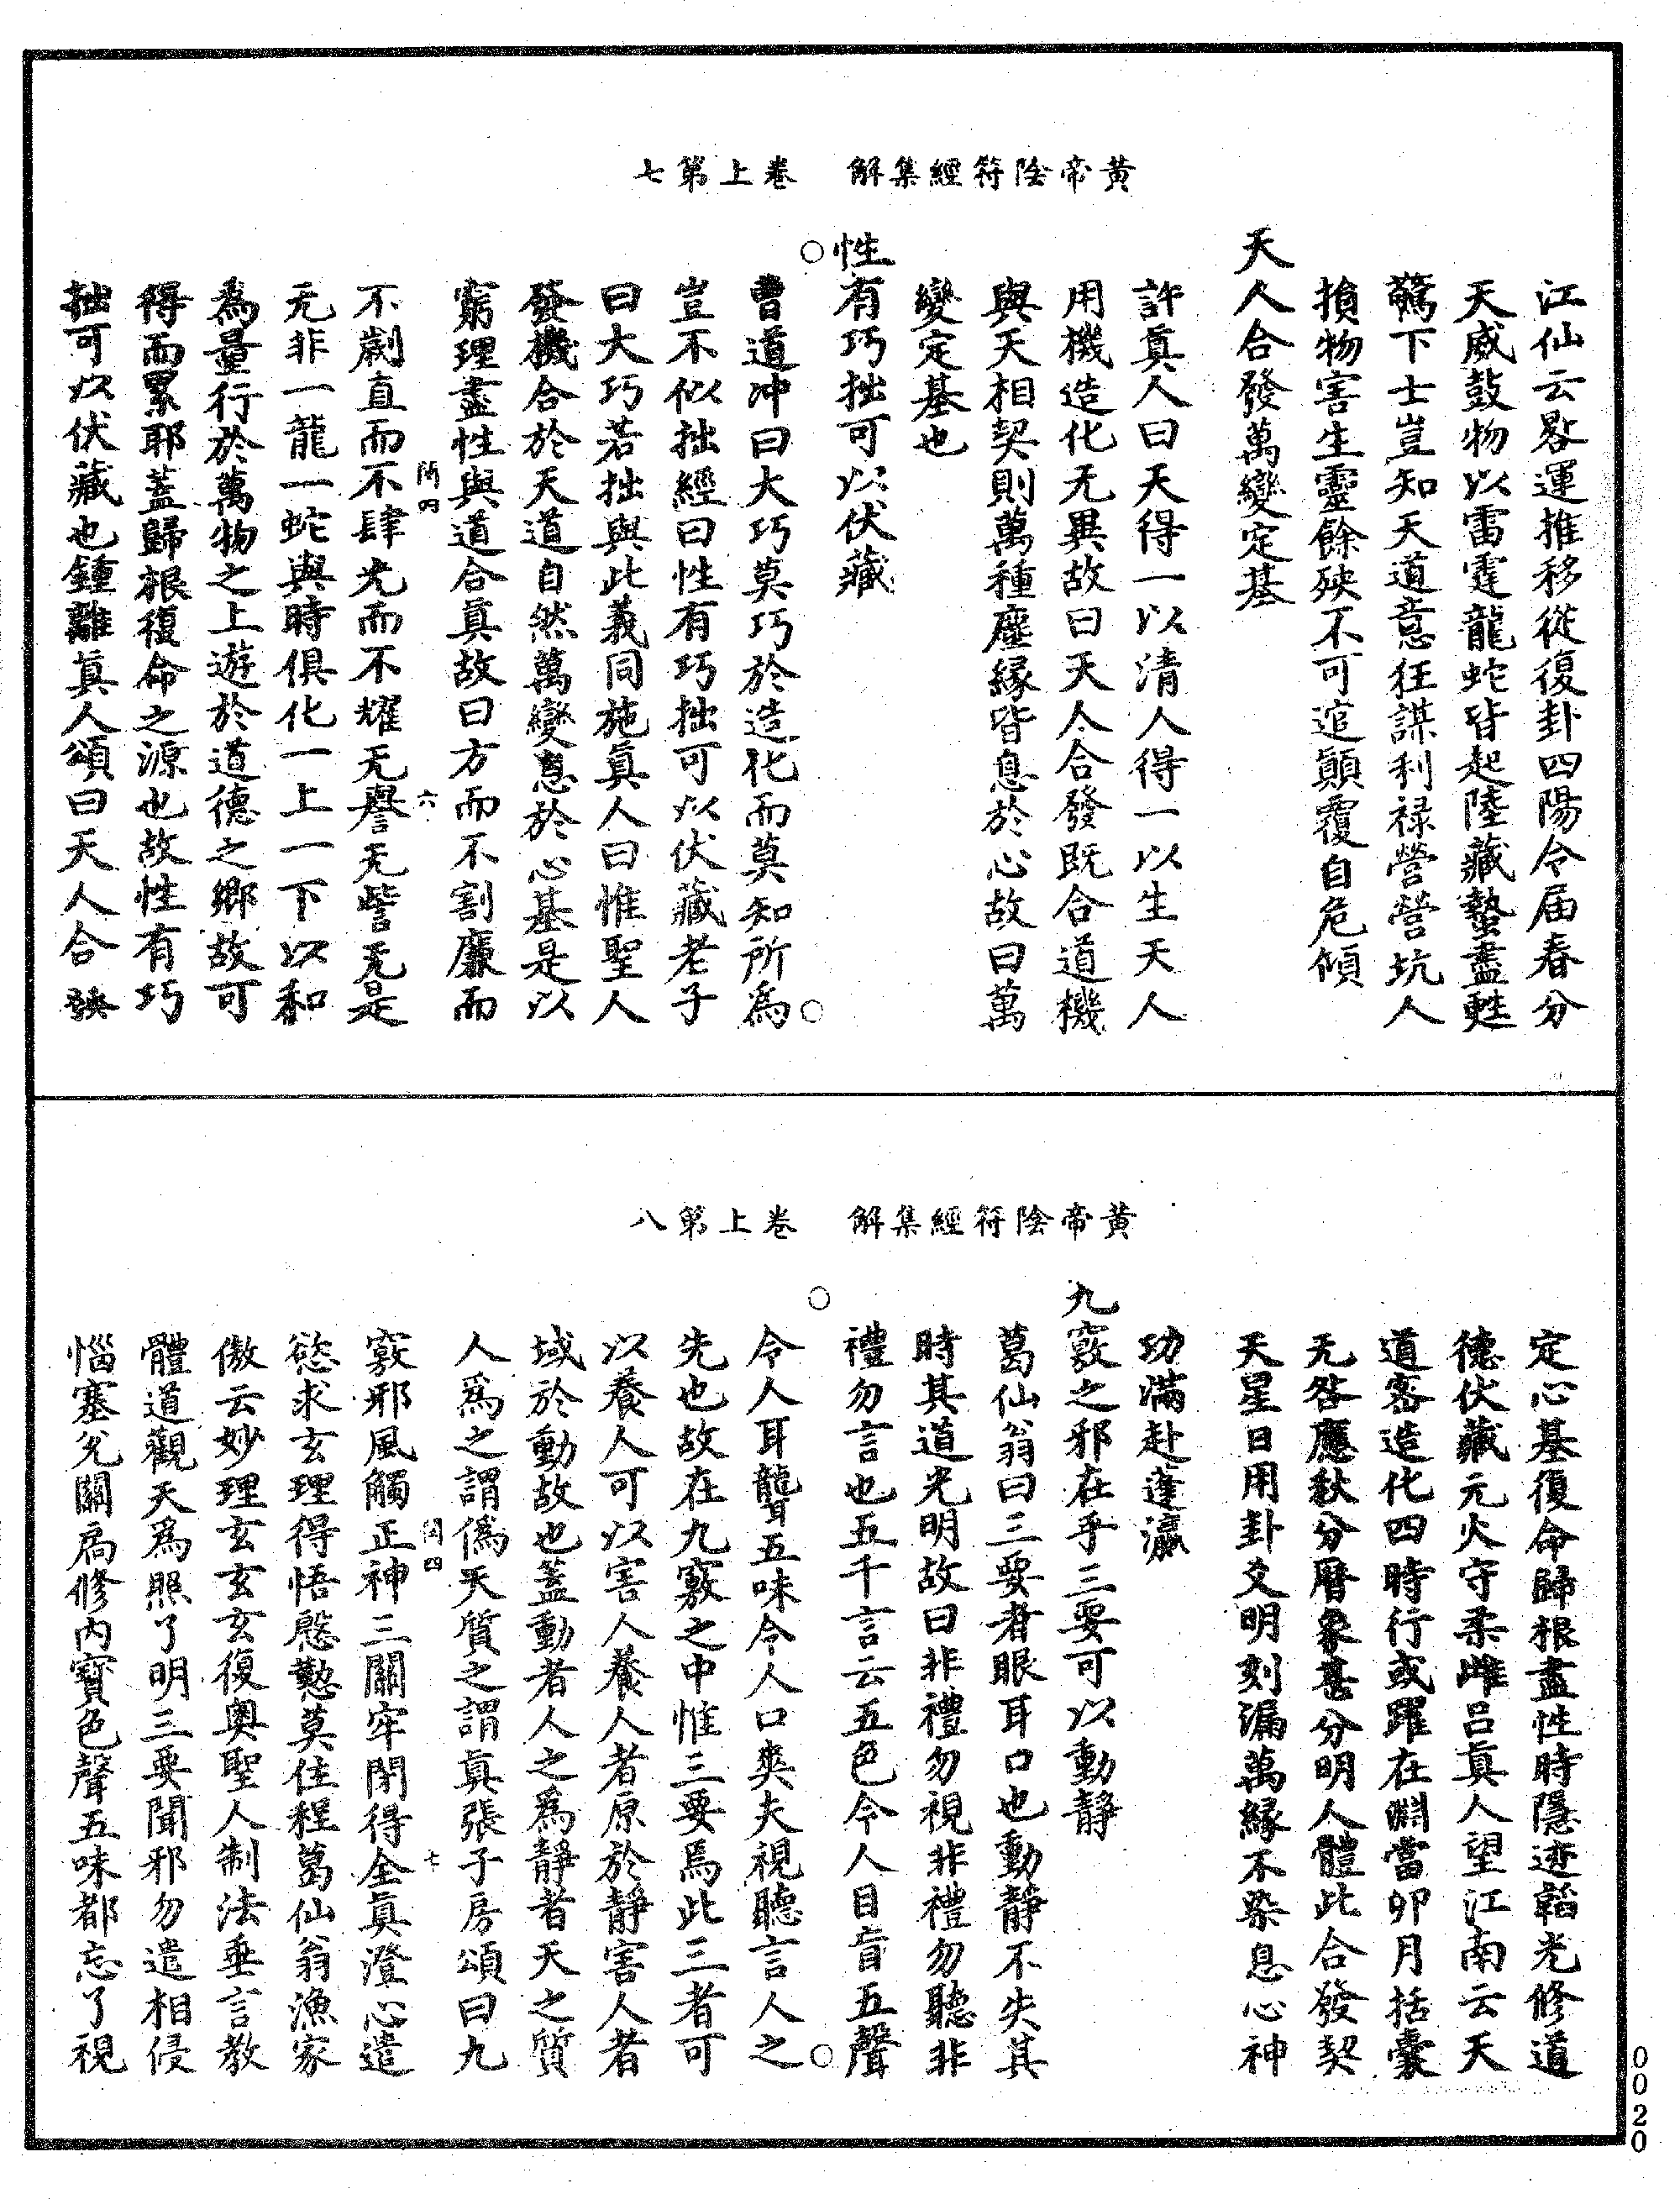 黃帝陰符經集解　卷上第七
江仙云晷運推移從復卦四陽令屆春分
天威鼓物以雷霆龍蛇皆起陸藏蟄盡甦
驚下士豈知天道意狂謀利祿營營坑人
損物害生靈餘殃不可逭顛覆自危傾
天人合發萬變定基
許眞人曰天得一以清人得一以生天人
用機造化无異故曰天人合發旣合道機
與天相契則萬種塵緣皆息於心故曰萬
變定基也
性有巧拙可以伏藏
曹道冲曰大巧莫巧於造化而莫知所爲
豈不似拙經曰性有巧拙可以伏藏老子
曰大巧若拙與此義同施眞人曰惟聖人
發機合於天道自然萬變息於心基是以
窮理盡性與道合眞故曰方而不割廉而
四　六
不劌直而不肆光而不耀无譽无訾无是
无非一龍一蛇與時俱化一上一下以和
爲量行於萬物之上遊於道德之鄉故可
得而累耶蓋歸根復命之源也故性有巧
拙可以伏藏也鍾離眞人頌曰天人合發
黃帝陰符經集解　卷上第八
定心基復命歸根盡性時隱迹韜光修道
德伏藏元火守柔雌呂眞人望江南云天
道密造化四時行或躍在淵當卯月括囊
无咎應秋分曆象甚分明人體此合發契
天星日用卦爻明刻漏萬緣不染息心神
功滿赴蓬瀛
九竅之邪在乎三要可以動靜
葛仙翁曰三要者眼耳口也動靜不失其
時其道光明故曰非禮勿視非禮勿聽非
禮勿言也五千言云五色令人目盲五聲
令人耳聾五味令人口爽夫視聽言人之
先也故在九竅之中惟三要焉此三者可
以養人可以害人養人者原於靜害人者
域於動故也蓋動者人之爲靜者天之質
人爲之謂僞天質之謂眞張子房頌曰九
四　七
竅邪風觸正神三關牢閉得全眞澄心遣
慾求玄理得悟慇懃莫住程葛仙翁漁家
傲云妙理玄玄玄復奧聖人制法垂言教
體道觀天爲照了明三要聞邪勿遣相侵
惱塞兌關扃修內寶色聲五味都忘了視
0020